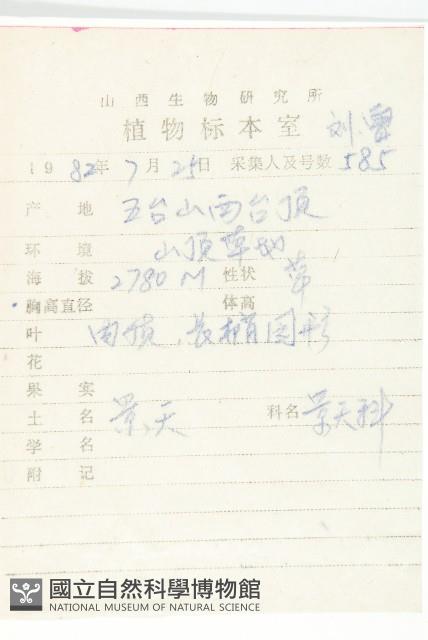 山西生物研究所
植物标本室 刘
1982年7月25日 采集人及号数 585
产地 五台山西台顶
环境 山顶草地
海拔 2780M 性状 草
胸高直径 体高
叶 肉质、长椭园形
花
果实
土名 景天 科名 景天科
学名
附记
國立自然科學博物館
NATIONAL MUSEUM OF NATURAL SCIENCE